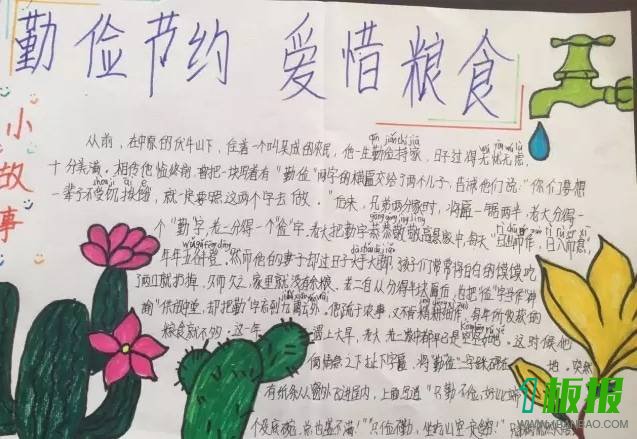 勤俭节约 爱惜粮食
小故事
从前，在中原的伏牛山下，住着一个叫吴成的农民，他一生勤俭持家，日子过得无忧无虑，
十分美满。相传他临终前，曾把一块写着有"勤俭"两字的横匾交给了两个儿子，告诫他们说："你们要想
一辈子不受饥挨饿，就一定要照这两个字去做。"后来，兄弟俩分家时，将匾一锯两半，老大分得一
个"勤"字，老二分得一个"俭"字。老大把勤字恭恭敬敬高悬家中，每天"日出而作，日入而息"，
年年五谷丰登。然而他的妻子却过日子大手大脚，孩子们常常将白白的馍馍吃
了两口就扔掉，久而久之，家里就没有余粮。老二自从分得半块匾后，也把"俭"字当作"神
谕"供放中堂，却把"勤"字忘到九霄云外。他疏于农事，又不肯精耕细作，每年所收获的
粮食就不够。这一年 遇上大旱，老大、老二家中都早已是空空如也。这时候他
俩情急之下扯下字匾，将"勤""俭"二字踩碎在 地。突然
有纸条从窗外飞进屋内，上面写道："只勤不俭，好比
个没底碗，总也盛不满！""只俭不勤，坐吃山空
1板报
WWW.1BANBAO.COM